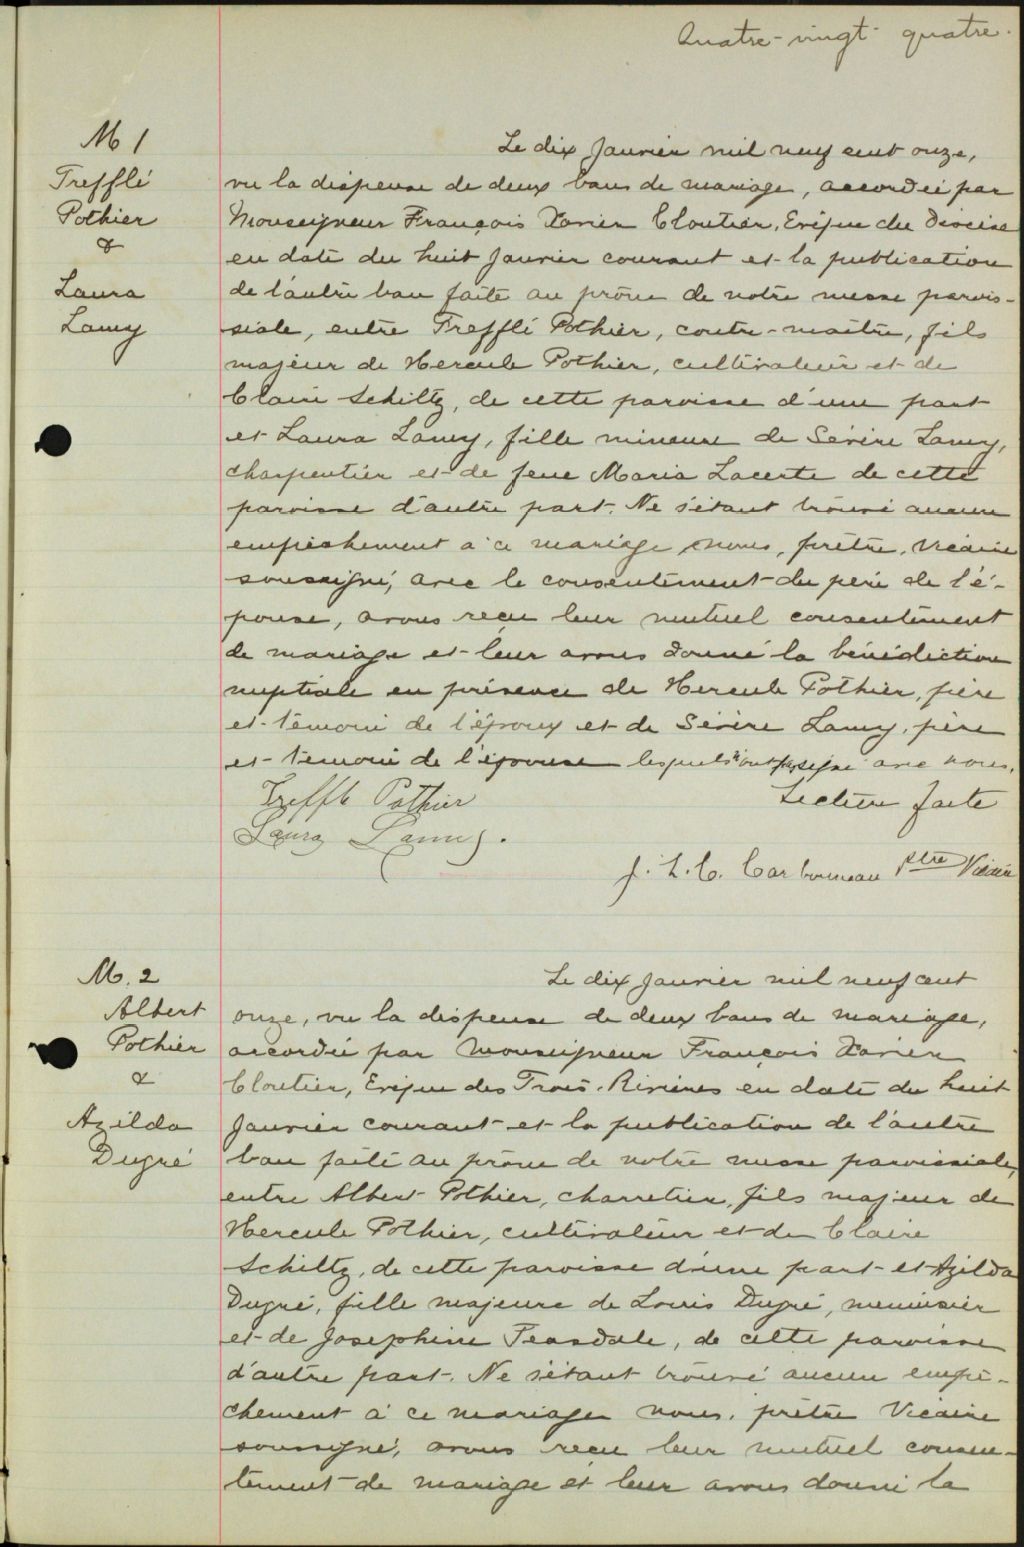 Quatre-vingt-quatre.
M 1
Trefflé
Pothier
&
Laura
Lamy
Le dix Janvier mil neuf cent onze,
vu la dispense de deux bans de mariage, accordée par
Monseigneur François Xavier Cloutier, Evêque du diocèse
en date du huit Janvier courant et la publication
de l'autre ban faite au prône de notre messe parois-
siale, entre Trefflé Pothier, contre-maître, fils
majeur de Hercule Pothier, cultivateur et de
Claire Schiltz, de cette paroisse d'une part
et Laura Lamy, fille mineure de Sévère Lamy,
charpentier et de feue Maria Lacerte de cette
paroisse d'autre part. Ne s'étant trouvé aucun
empêchement à ce mariage nous, prêtre, vicaire
soussigné, avec le consentement du père de l'é-
pouse, avons reçu leur mutuel consentement
de mariage et leur avons donné la bénédiction
nuptiale en présence de Hercule Pothier, père
et témoin de l'époux et de Sévère Lamy, père
et témoin de l'épouse lesquels n'ont pas signé avec nous.
Lecture faite
Treffle Pothier
Laura Lamy.
J. L. C. Carbonneau ptre Vicaire
M. 2
Albert
Pothier
&
Azilda
Dugré
Le dix Janvier mil neuf cent
onze, vu la dispense de deux bans de mariage,
accordée par Monseigneur François Xavier
Cloutier, Evêque des Trois-Rivières en date du huit
Janvier courant et la publication de l'autre
ban faite au prône de notre messe paroissiale,
entre Albert Pothier, charretier, fils majeur de
Hercule Pothier, cultivateur et de Claire
Schiltz, de cette paroisse d'une part et Azilda
Dugré, fille majeure de Louis Dugré, menuisier
et de Josephine Teasdale, de cette paroisse
d'autre part. Ne s'étant trouvé aucun empê-
chement à ce mariage nous, prêtre Vicaire
soussigné, avons reçu leur mutuel consen-
tement de mariage et leur avons donné la